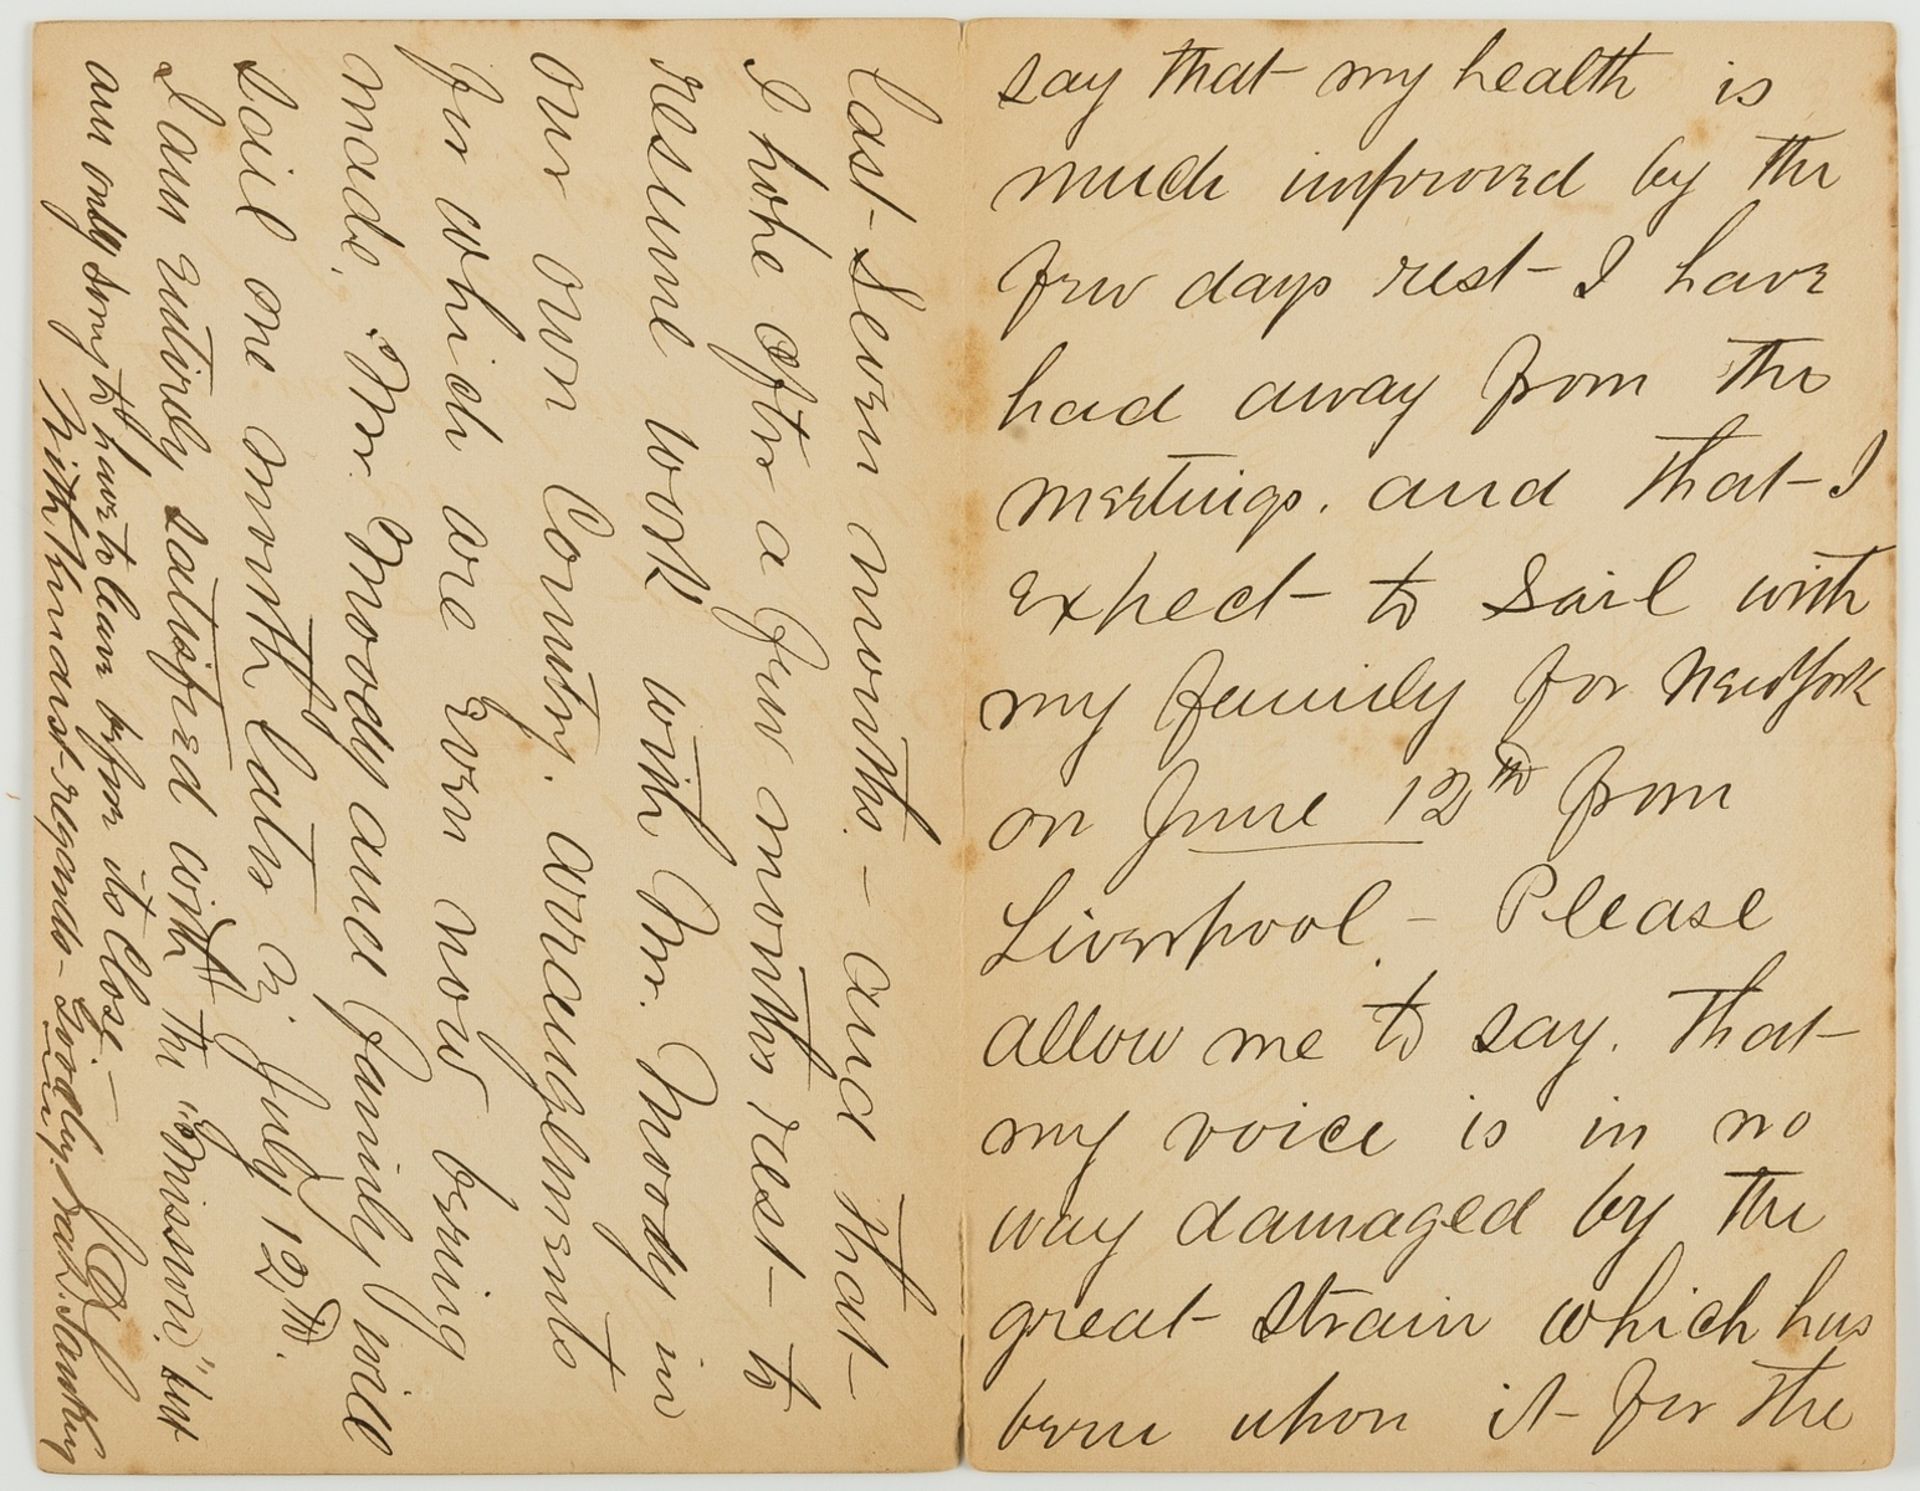 say that my health is
much improved by the
few days rest - I have
had away from the
meetings. and that - I
expect - to sail with
my family for New York
on June 12th from
Liverpool. - Please
allow me to say. that -
my voice is in no
way damaged by the
great strain which has
been upon it - for the
last - seven months. - and that -
I hope after a few months rest - to
resume work with Mr. Moody in
our own Country. arrangements
for which are even now being
made. Mr. Moody and family will
sail one month later viz. July 12th.
I am entirely satisfied with the "Mission." but
am only sorry to have to leave before its close -
With kindest regards - Goodbye. Ira D. Sankey